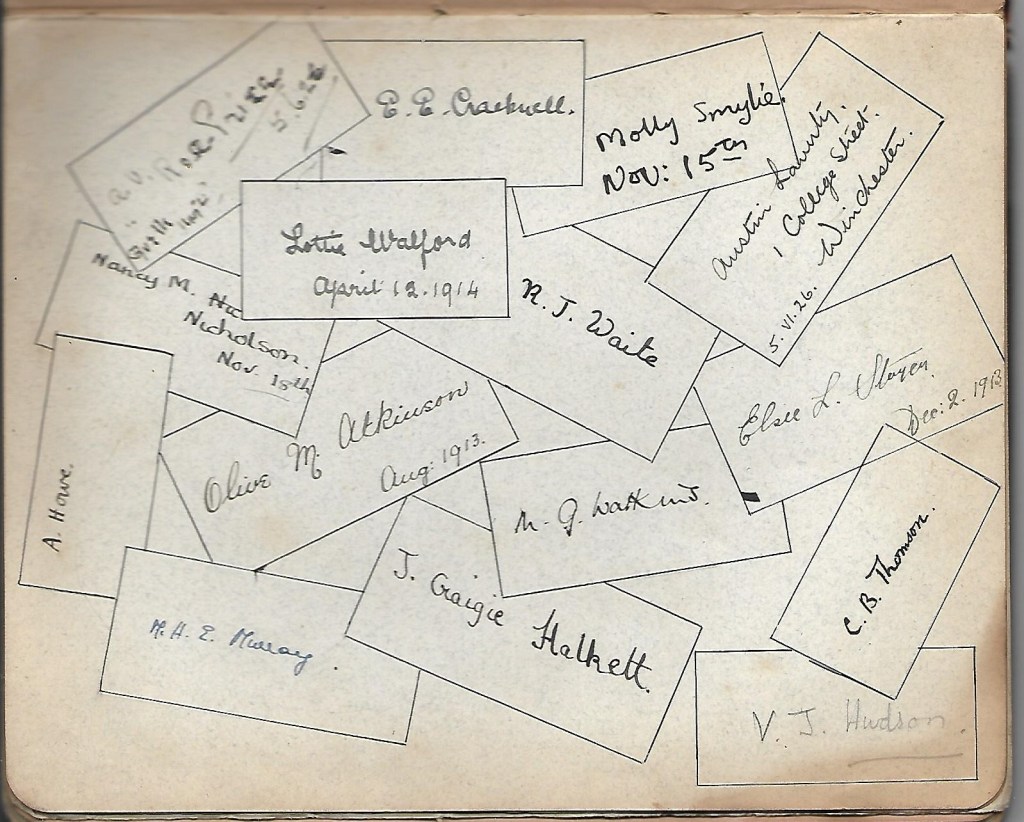 E. E. Cracknell.
Molly Smylie.
Nov: 15th
Austin
1 College Street.
Winchester.
5.VI.26.
5.6.26
Lottie Walford
April 12.1914
Nancy M.
Nicholson.
Nov. 18th
R. J. Waite
Elsie L.
Dec: 2. 1913
Olive M. Atkinson
Aug: 1913.
A. Howe.
J. Craigie Halkett.
C. B. Thomson.
M. H. E. Murray.
V. J. Hudson